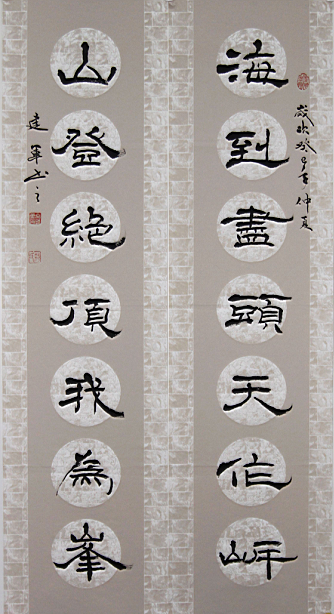 歲次癸巳年仲夏
海到盡頭天作岸
山登絶頂我為峯
建軍书之